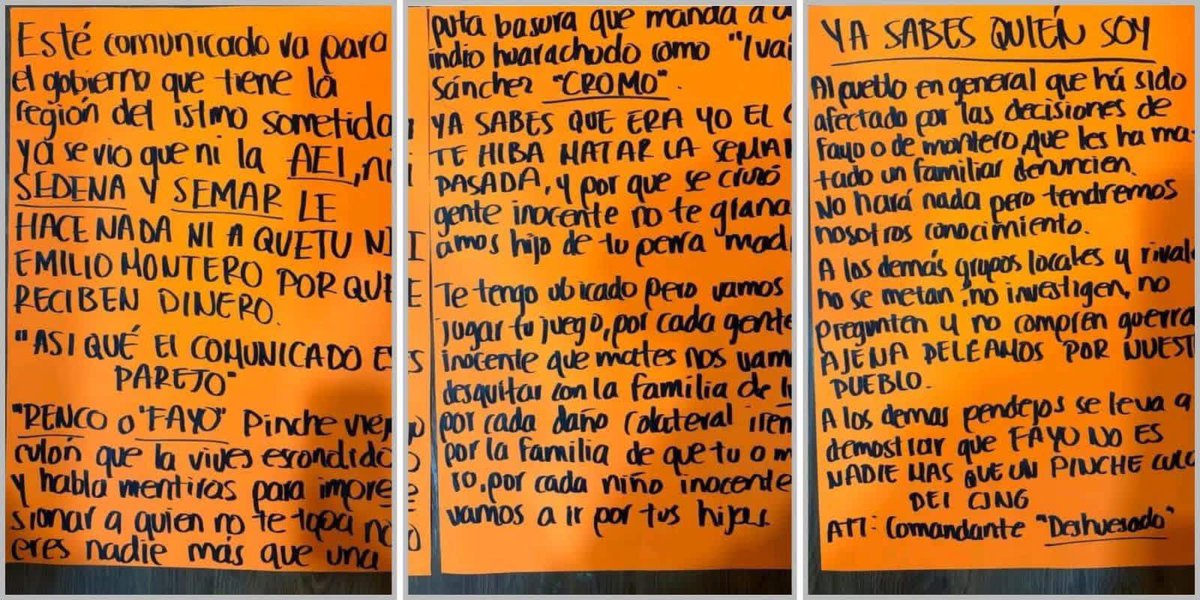 Esté comunicado va para
el gobierno que tiene la
región del istmo sometida
ya se vio que ni la AEI, ni
SEDENA Y SEMAR LE
HACE NADA NI A QUETU NI
EMILIO MONTERO POR QUE
RECIBEN DINERO.
"ASI QUÉ EL COMUNICADO E
PAREJO"
"RENCO o "FAYO" Pinche viej
culón que la vives escondido
y habla mentiras para impre
sionar a quien no te topa no
eres nadie más que una
puta basura que manda a u
indio huarachudo como "Ivai
Sánchez "CROMO".
YA SABES QUE ERA YO EL Q
TE HIBA MATAR LA SEMAN
PASADA, y por que se cruzó
gente inocente no te grana
amos hijo de tu perra "mad
Te tengo ubicado pero vamos
jugar tu juego, por cada gente
inocente que mates nos vam
desquitar con la familia de
por cada daño colateral iren
por la familia de que tu o m
ro, por cada niño inocente
vamos a ir por tus hijas
YA SABES QUIÉN SOY
Al pueblo en general que há sido
afectado por las decisiones de
fayo o de montero, que les ha ma
tado un familiar denuncien.
No hará nada pero tendremos
nosotros conocimiento.
A los demás grupos locales y rival
no se metan, no investigen, no
pregunten y no compren guerra
AJENA PELEAMOS POR NUEST
PUEBLO.
A los demas pendejos se leva a
demostrar que FAYO NO ES
NADIE MAS QUE UN PINCHE CULO
DEL CJNG
ATT: Comandante "Deshuesado"